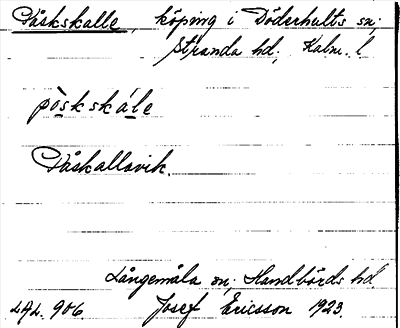 Påskskalle, köping i Döderhults sn;
Stranda hd; Kalm. l
pòskskále
Påskallavik.
Långemåla sn; Handbörds hd
LAL. 906. Josef Ericsson 1923.